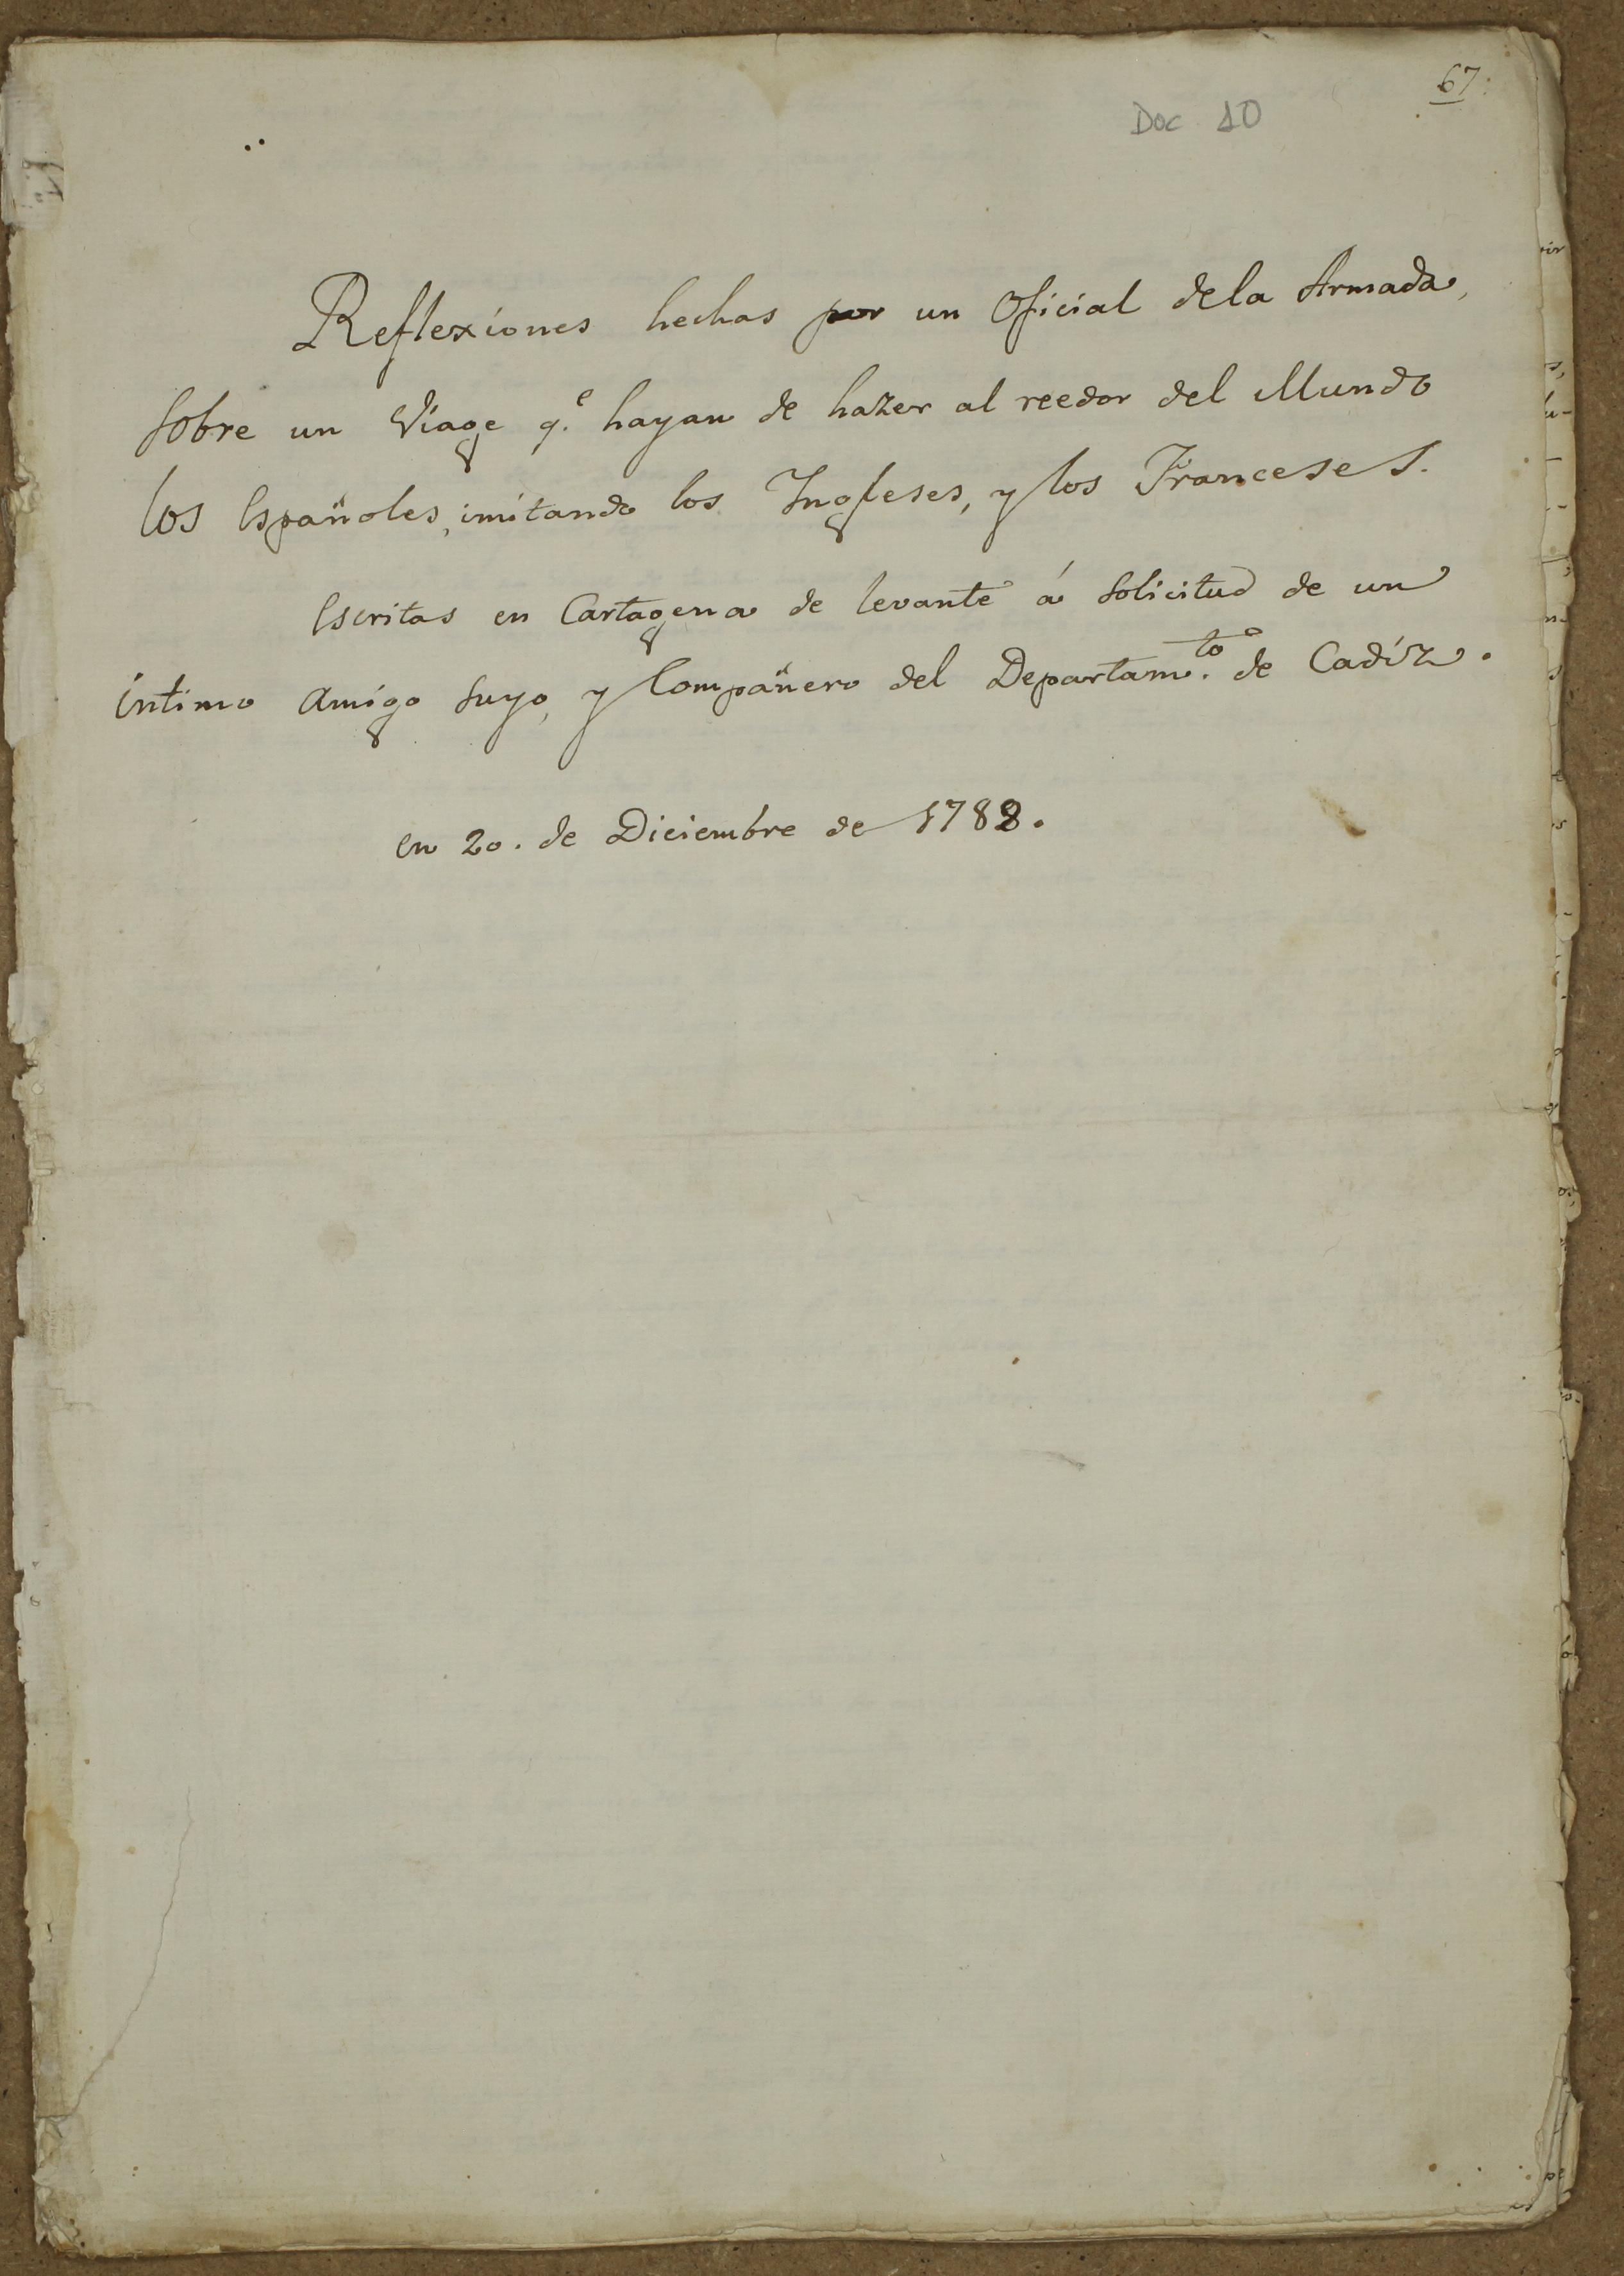 67
Doc 10
Reflexiones hechas por un Oficial dela Armada,
sobre un Viage q.e hayan de hazer al reedor del Mundo
los Españoles, imitando los Ingleses, y los Franceses.
Escritas en Cartagena de levante á solicitud de un
íntimo Amigo suyo, y Compañero del Departam.to de Cadíz.
en 20. de Diciembre de 1788.